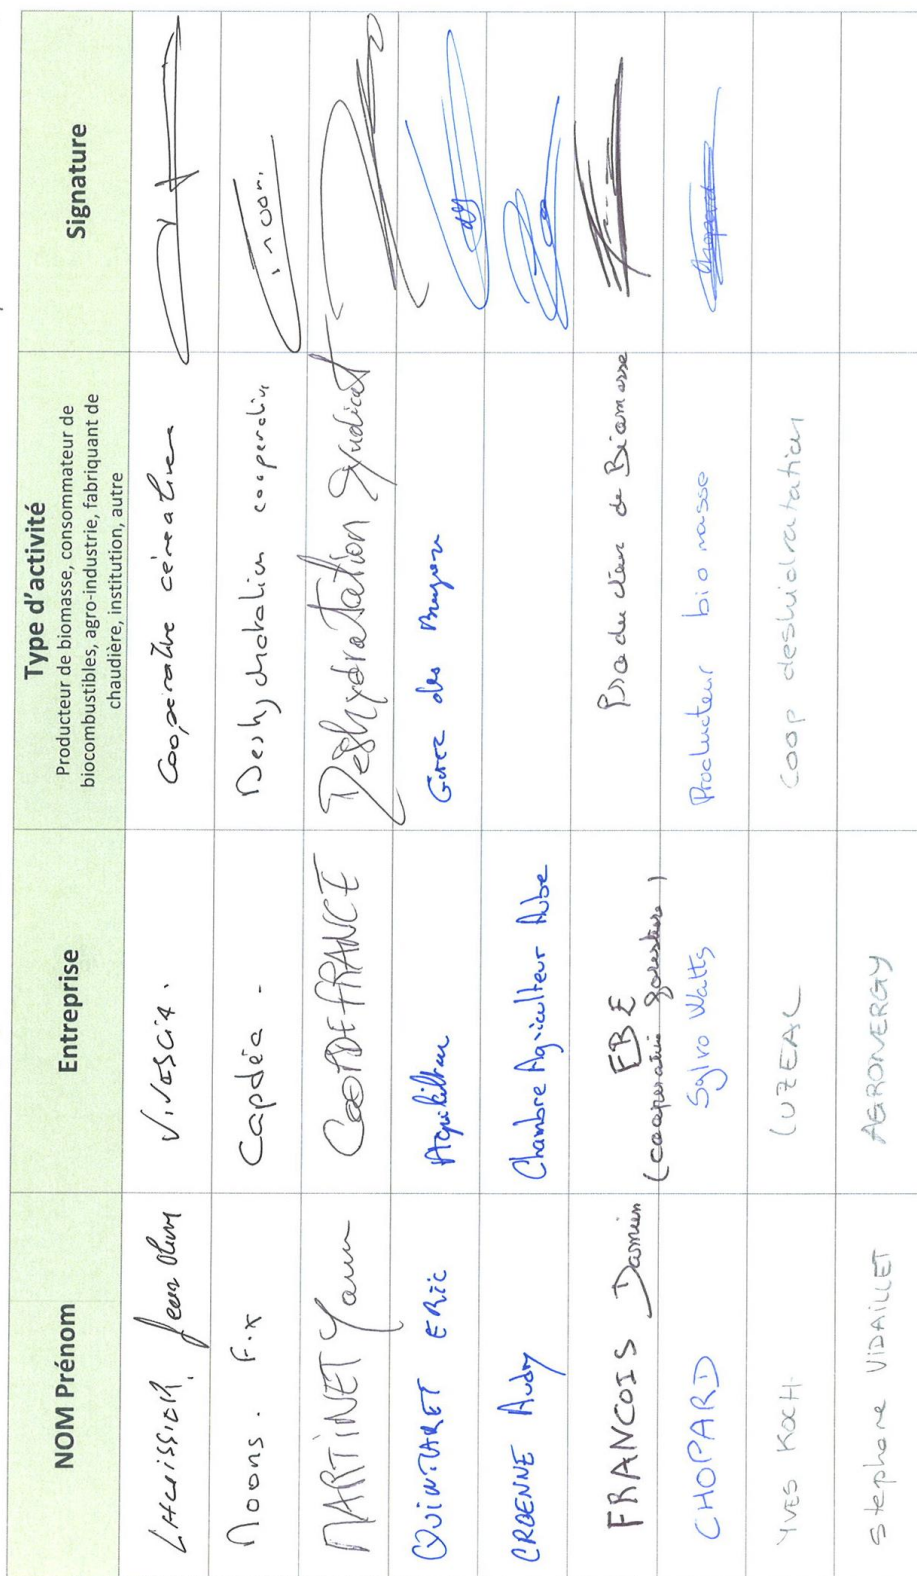 NOM Prénom
Entreprise
Type d'activité
Producteur de biomasse, consommateur de
biocombustibles, agro-industrie, fabriquant de
chaudière, institution, autre
Signature
Jean
Vivescia.
Coopérative céréalière
Moons. F.X
Capdéa -
Deshydratation coopérative
Moons
MARTINET Yann
COOPDEFRANCE
Deshydratation Syndicat
QUINTARET ERic
des
CROENNE
Chambre Agriculteur Aube
FRANCOIS Damien
FBE
(coopérative forestière)
Producteur de Biomasse
CHOPARD
Sylvo Watts
Producteur biomasse
Chopard
YVES KOCH
LUZEAL
COOP deshidratation
Stephane VIDAILLET
AGRONERGY